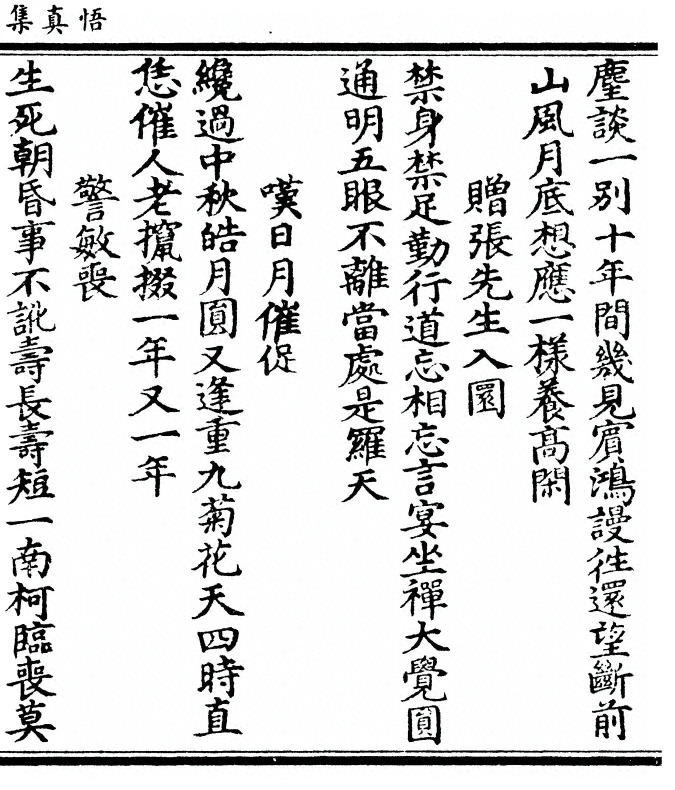 悟真集
麈談一別十年間幾見賓鴻謾徃還望斷前
山風月底想應一樣養高閑
贈張先生入圜
禁身禁足勤行道忘相忘言宴坐禪大覺圓
通明五眼不離當處是羅天
嘆日月催促
纔過中秋皓月圓又逢重九菊花天四時直
恁催人老攛掇一年又一年
警敏喪
生死朝昏事不訛壽長壽短一南柯臨喪莫